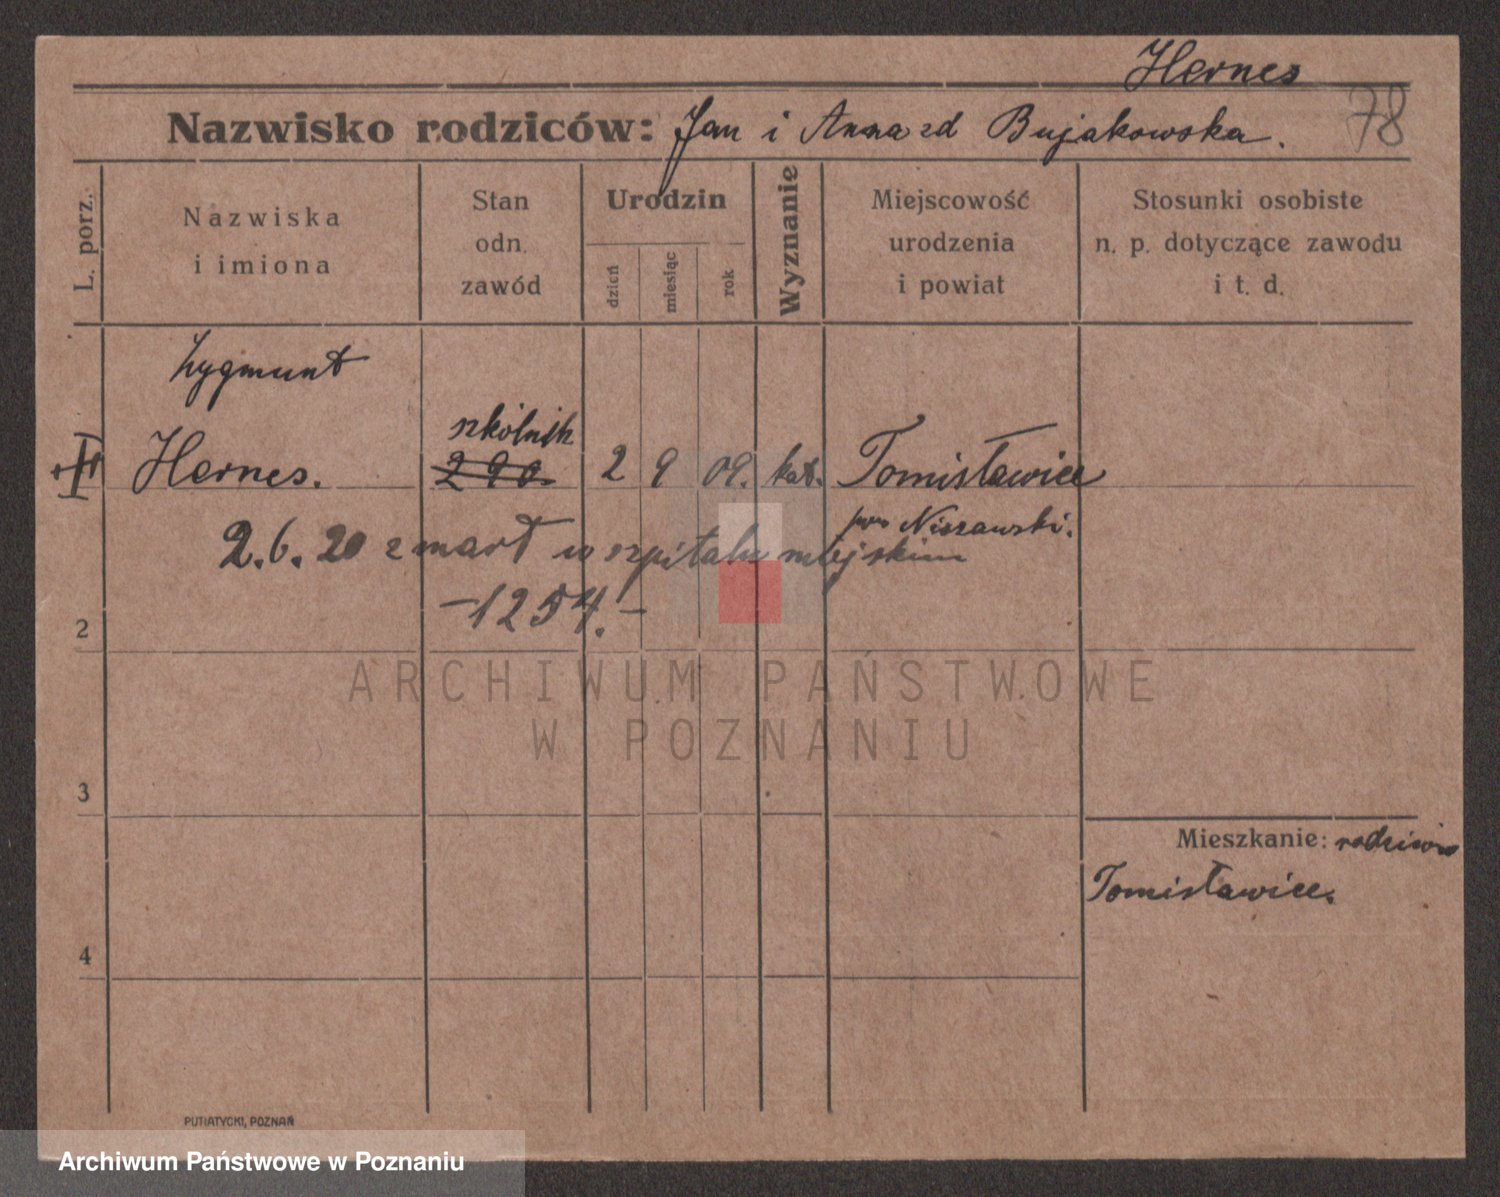 Hernes
Nazwisko rodziców: Jan i Anna zd Bujakowska.
78
L. porz.
Nazwiska
i imiona
Stan
odn.
zawód
Urodzin
dzień
miesiąc
rok
Wyznanie
Miejscowość
urodzenia
i powiat
Stosunki osobiste
n. p. dotyczące zawodu
i t. d.
Zygmunt
szkolnik
Hernes. 2 9 09. kat. Tomisławice
pow Niszawski.
2.6.20 zmarł w szpitalu miejskim
-1254.-
2
ARCHIWUM PAŃSTWOWE
W POZNANIU
3
Mieszkanie: rodziców
Tomisławice.
4
PUTIATYCKI, POZNAŃ
Archiwum Państwowe w Poznaniu